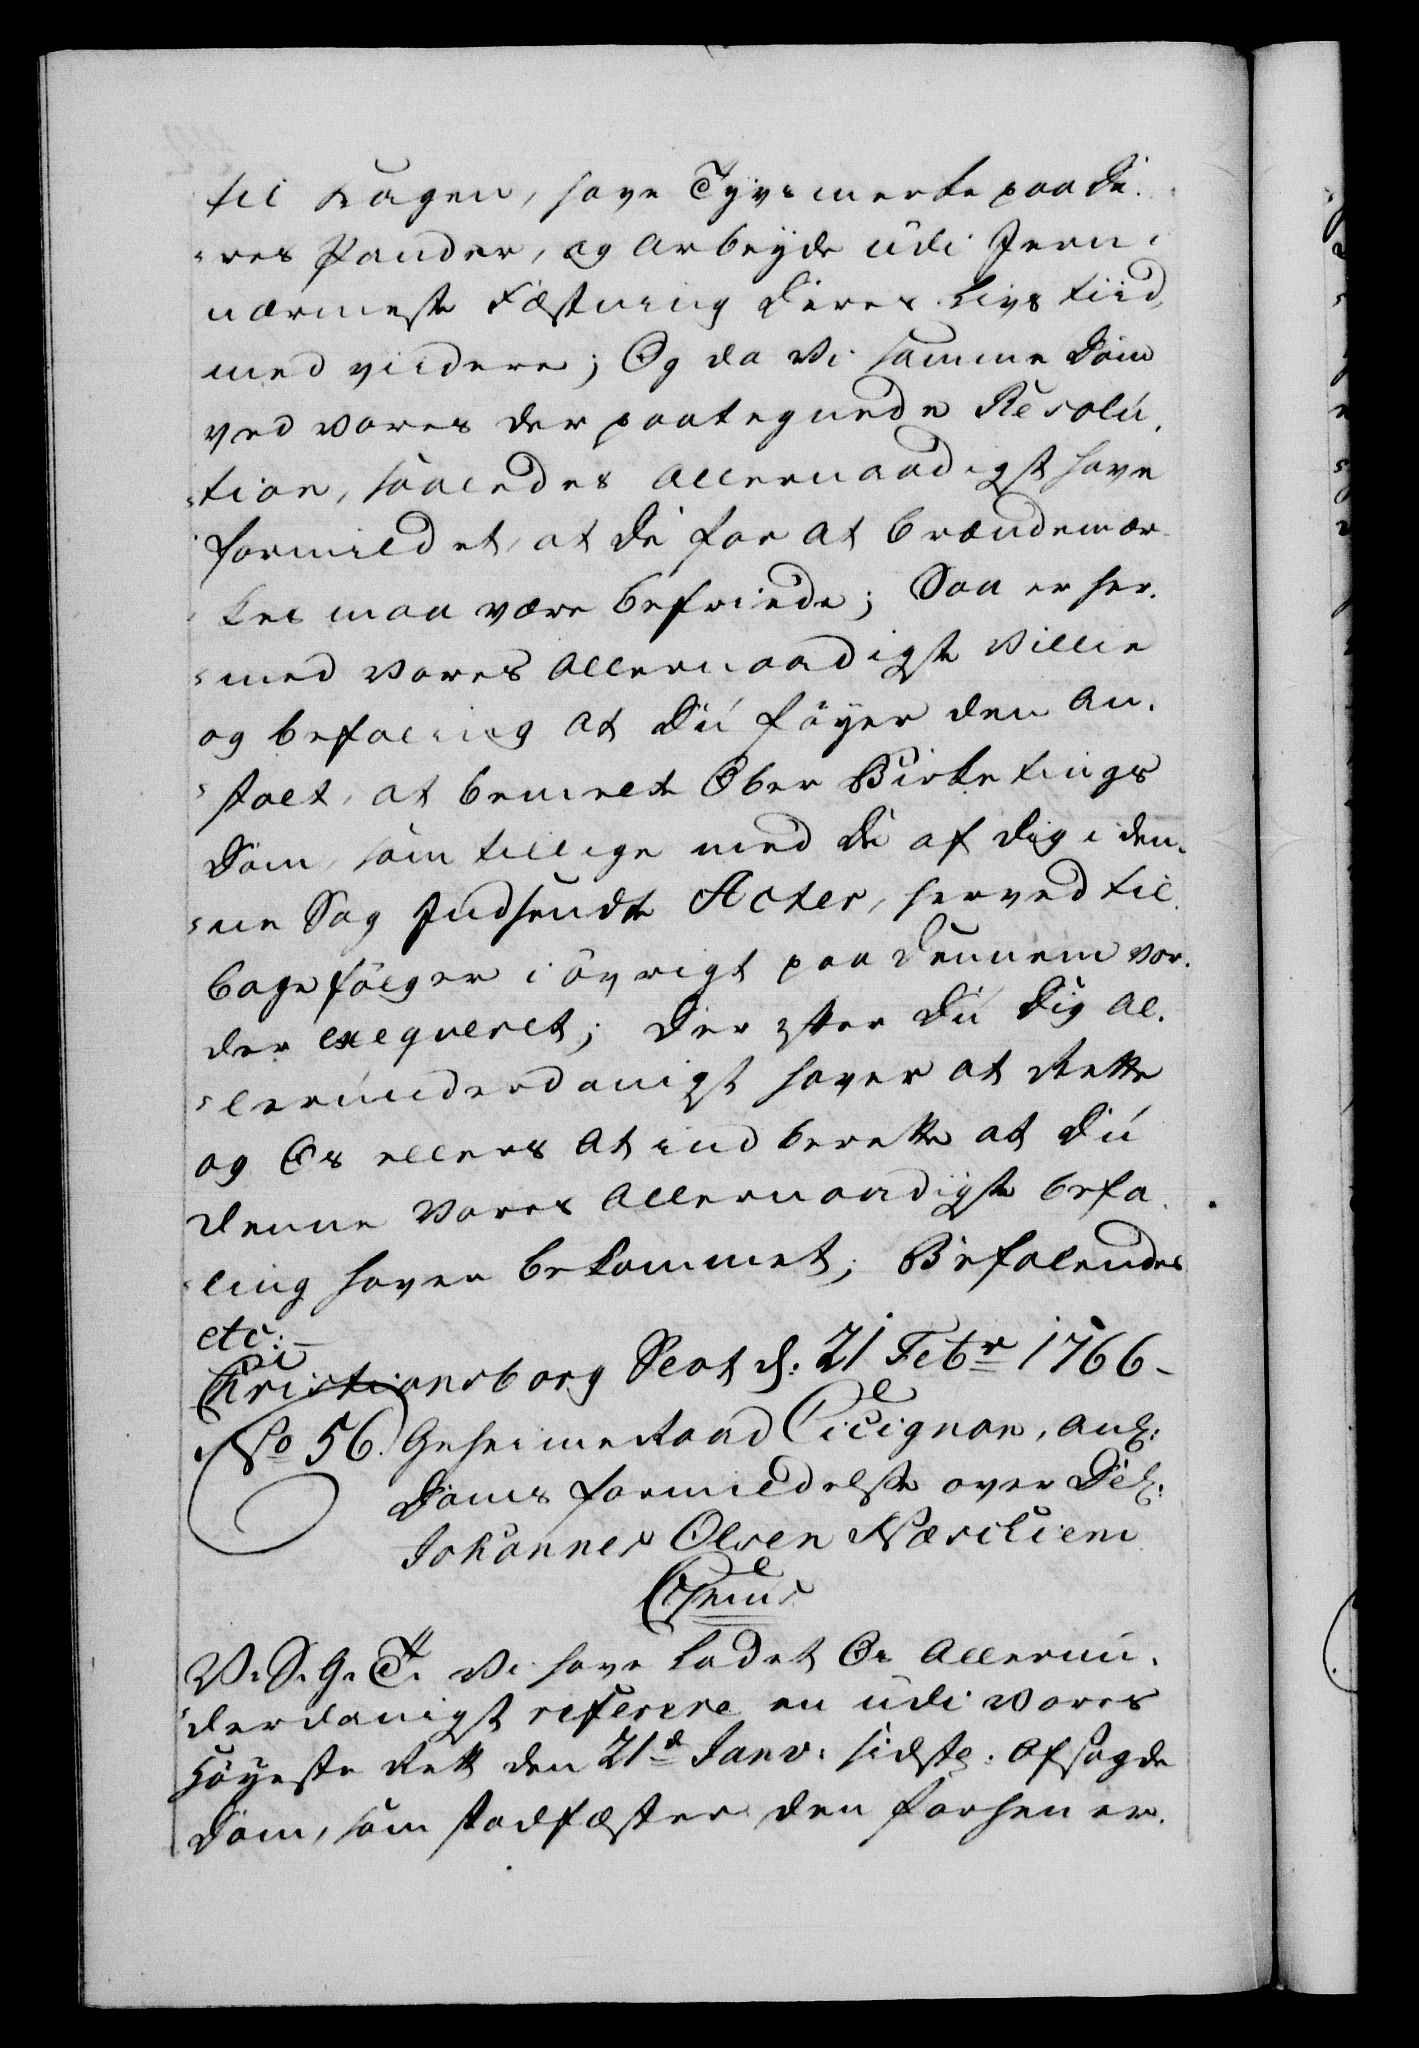 til Kagen, have Tyvs merke paa de¬
res Pander, og arbeyde udi Jern i
nærmeste Fæstning deres Livs tiid,
med viidere; Og da Vi samme Dom
ved vores der paategnede Resolu¬
tion, saaledes allernaadigst have
formildet, at de for at brændemær¬
kes maa være befriede; Saa er her¬
med Vores allernaadigste Villie
og befaling at Du föyer den An¬
stalt, at bemelte Ober Birketings
Dom, som tillige med de af dig i den¬
ne Sag Indsendte Acter, herved til¬
bagefölger i övrigt paa dennem vor¬
der exeqveret; Der efter Du dig al¬
lerunderdanigst haver at rette
og Os ellers at indberette at Du
denne Vores allernaadigste befa¬
ling haver bekommet; Befalendes
etc:
Christiansborg Slot d: 21 Febr 1766.
No 56. Geheimeraad Cicignon, anl:
Doms formildelse over Del:
Johannes Olsen Næschiem
C 7mus
V. S. G. T. Vi have ladet Os allerun¬
derdanigst referere en udi Vores
Höyeste Rett den 21d Janv: sidstl: afsagde
Dom, som stadfæster den forhen er¬